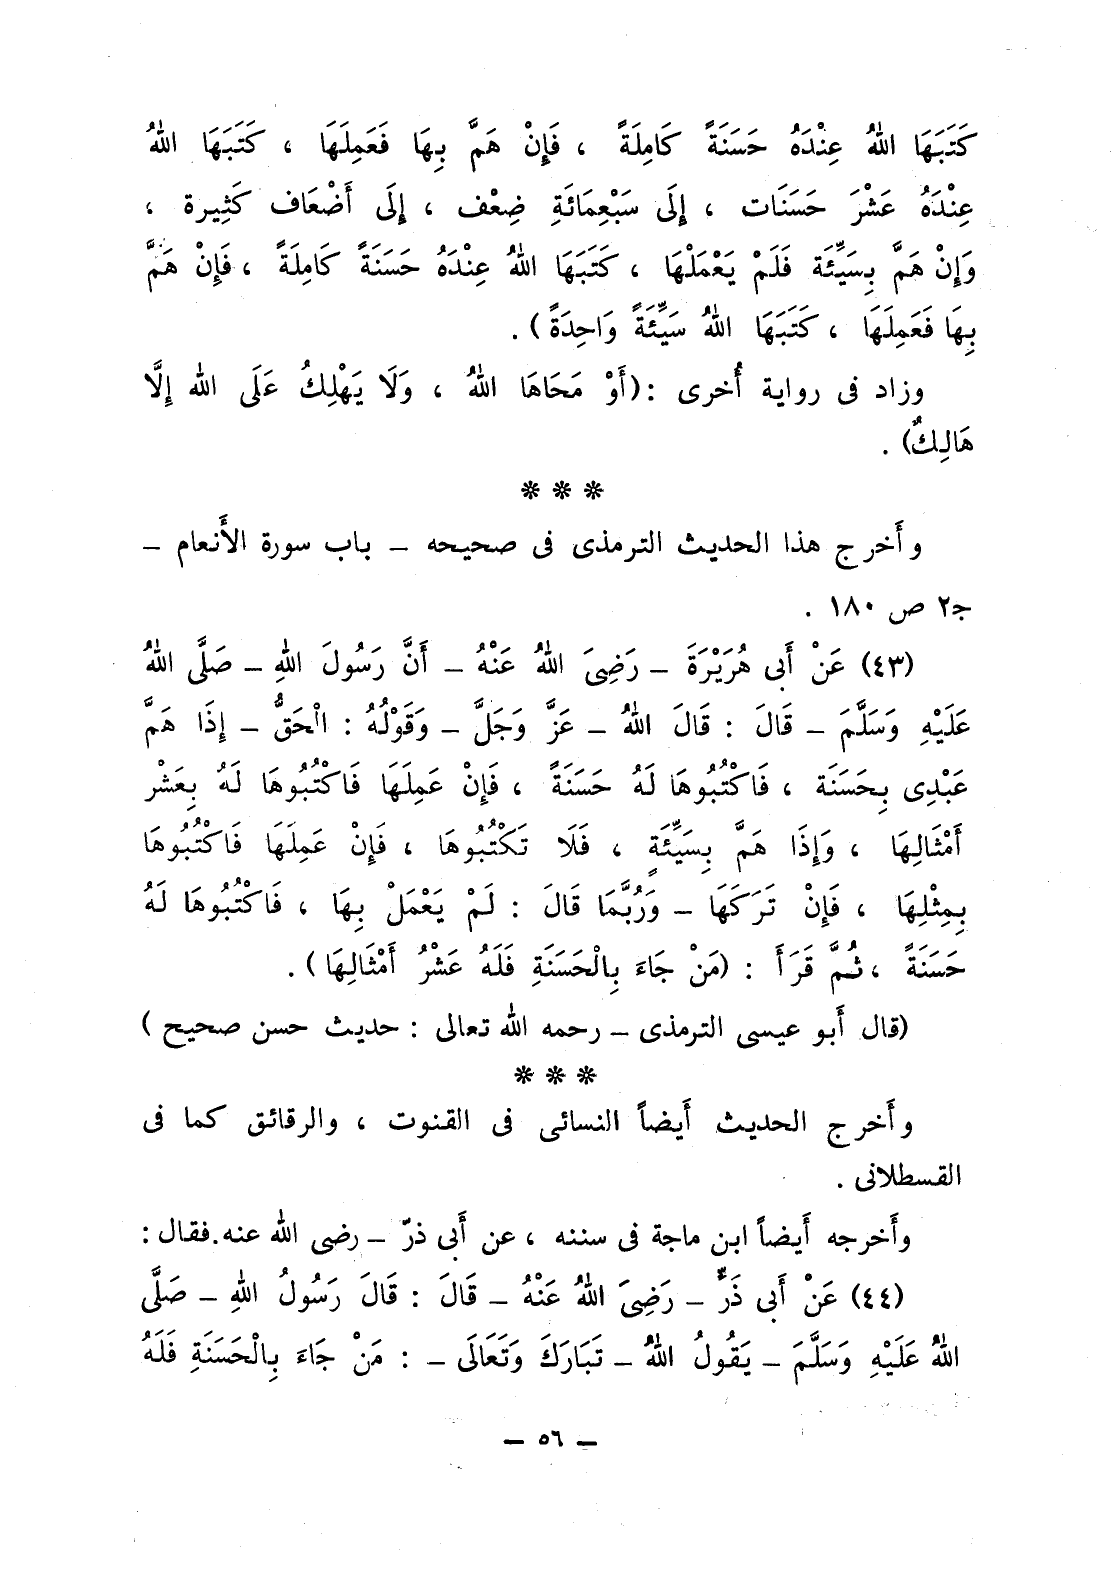 كَتَبَهَا اللهُ عِنْدَهُ حَسَنَةً كَامِلَةً ، فَإِنْ هَمَّ بِهَا فَعَمِلَهَا ، كَتَبَهَا اللهُ
عِنْدَهُ عَشْرَ حَسَنَات ، إِلَى سَبْعِمَائَةِ ضِعْف ، إِلَى أَضْعَاف كَثِيرة ،
وَإِنْ هَمَّ بِسَيِّئَة فَلَمْ يَعْمَلْهَا ، كَتَبَهَا اللهُ عِنْدَهُ حَسَنَةً كَامِلَةً ، فَإِنْ هَمَّ
بِهَا فَعَمِلَهَا ، كَتَبَهَا اللهُ سَيِّئَةً وَاحِدَةً ) .
وزاد فى رواية أُخرى : (أَوْ مَحَاهَا اللهُ ، وَلَا يَهْلِكُ عَلَى الله إِلَّا
هَالِكٌ) .
* * *
وأَخرج هذا الحديث الترمذى فى صحيحه – باب سورة الأَنعام –
جـ٢ ص ١٨٠ .
(٤٣) عَنْ أَبى هُرَيْرَةَ – رَضِىَ اللهُ عَنْهُ – أَنَّ رَسُولَ اللهِ – صَلَّى اللهُ
عَلَيْهِ وَسَلَّمَ – قَالَ : قَالَ اللهُ – عَزَّ وَجَلَّ – وَقَوْلُهُ : الْحَقُّ – إِذَا هَمَّ
عَبْدِى بِحَسَنَة ، فَاكْتُبُوهَا لَهُ حَسَنَةً ، فَإِنْ عَمِلَهَا فَاكْتُبُوهَا لَهُ بِعَشْر
أَمْثَالِهَا ، وَإِذَا هَمَّ بِسَيِّئَةٍ ، فَلَا تَكْتُبُوهَا ، فَإِنْ عَمِلَهَا فَاكْتُبُوهَا
بِمِثْلِهَا ، فَإِنْ تَرَكَهَا – وَرُبَّمَا قَالَ : لَمْ يَعْمَلْ بِهَا ، فَاكْتُبُوهَا لَهُ
حَسَنَةً ، ثُمَّ قَرَأَ : (مَنْ جَاءَ بِالْحَسَنَةِ فَلَهُ عَشْرُ أَمْثَالِهَا ) .
(قال أَبو عيسى الترمذى – رحمه الله تعالى : حديث حسن صحيح )
* * *
وأَخرج الحديث أَيضاً النسائى فى القنوت ، والرقائق كما فى
القسطلانى .
وأخرجه أَيضاً ابن ماجة فى سننه ، عن أَبى ذرّ – رضى الله عنه. فقال :
(٤٤) عَنْ أَبى ذَرٍّ – رَضِىَ اللهُ عَنْهُ – قَالَ : قَالَ رَسُولُ اللهِ – صَلَّى
اللهُ عَلَيْهِ وَسَلَّمَ – يَقُولُ اللهُ – تَبَارَكَ وَتَعَالَى – : مَنْ جَاءَ بِالْحَسَنَةِ فَلَهُ
– ٥٦ –